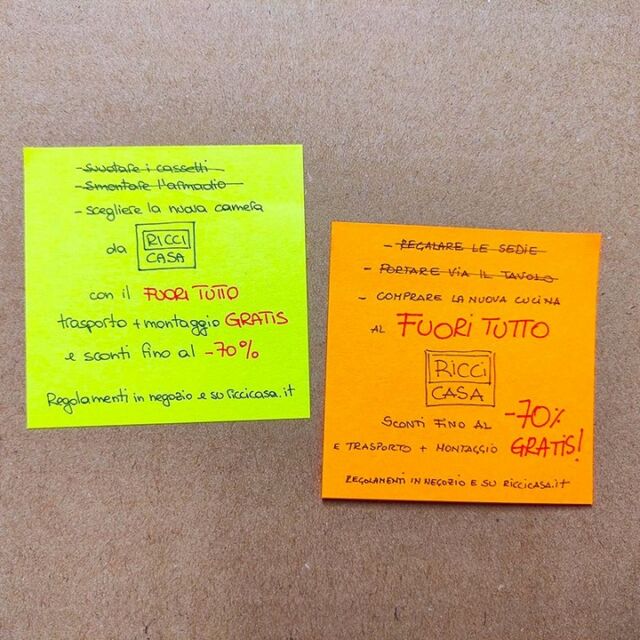 - Svuotare i cassetti
- Smontare l'armadio
- scegliere la nuova camera
da RICCI CASA
con il FUORI TUTTO
trasporto + montaggio GRATIS
e sconti fino al -70%
Regolamenti in negozio e su riccicasa.it
- REGALARE LE SEDIE
- PORTARE VIA IL TAVOLO
- COMPRARE LA NUOVA CUCINA
AL FUORI TUTTO
RICCI
CASA
SCONTI FINO AL -70%
E TRASPORTO + MONTAGGIO GRATIS!
REGOLAMENTI IN NEGOZIO E SU RICCICASA.it